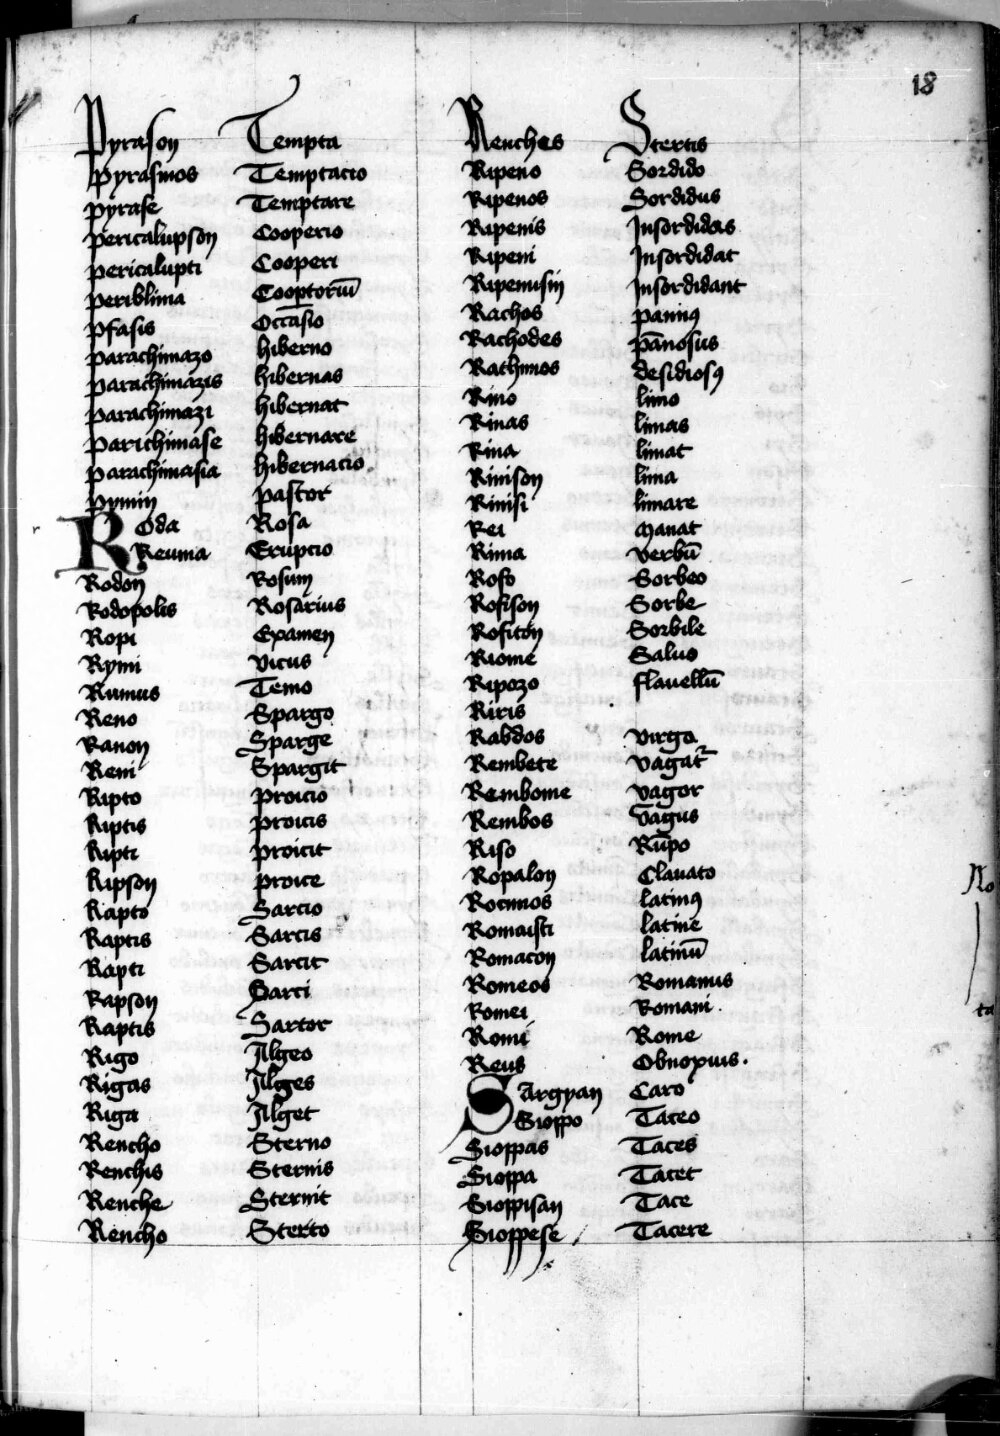 18
Pyrason Tempta
Pyrasmos Temptacio
Pyrase Temptare
Pericalupson Cooperio
Pericalupti Cooperi
Periblima Cooptoriū
Pfasis Occāsio
Parachimazo hiberno
Parachimazis hibernas
Parachimazi hibernat
Parichimase hibernare
Parachimasia hibernacio
Pymin pastor
Roda Rosa
Reuma Eruptio
Rodon Rosum
Rodopolis Rosarius
Ropi Examen
Rymi vicus
Rumus Temo
Reno Spargo
Ranon Sparge
Reni Spargit
Ripto proicio
Riptis proicis
Ripti proicit
Ripson proice
Rapto Sarcio
Raptis Sarcis
Rapti Sarcit
Rapson Sarci
Raptis Sartor
Rigo Ilgeo
Rigas Ilges
Riga Ilget
Rencho Sterno
Renchis Sternis
Renche Sternit
Rencho Sterto
Renches Stertis
Ripeno Sordido
Ripenos Sordidus
Ripenis Insordidas
Ripeni Insordidat
Ripenusin Insordidant
Rachos panniꝯ
Rachodes pānosus
Rathmos desidiosꝯ
Rino limo
Rinas limas
Rina limat
Rinison lima
Rinisi limare
Rei manat
Rima verbū
Rofo Sorbeo
Rofison Sorbe
Rofiton Sorbile
Riome Saluo
Ripozo flauellū
Riris
Rabdos virgo
Rembete vagat̄
Rembome vagor
Rembos vagus
Riso Rūpo
Ropalon Clauato
Rocmos latinꝯ
Romaisti latine
Romacon latinū
Romeos Romanus
Romei Romani
Romi Rome
Reus Obnoxius.
Sargyan Caro
Sioppo Taceo
Sioppas Taces
Sioppa Tacet
Sioppisan Tace
Sioppese Tacere